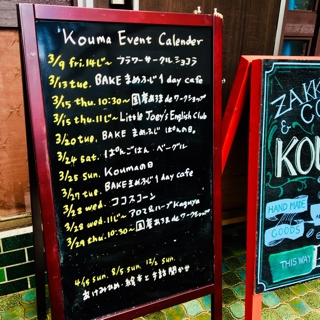 Kouma Event Calender
3/9 fri. 14じ〜 フラワーサークル ショコラ
3/13 tue. BAKE まめふじ 1 day cafe
3/15 thu. 10:30〜 deワークショップ
3/15 thu. 11じ〜 Little Joey's English Club
3/20 tue. BAKE まめふじ ぱんの日。
3/24 sat. ぱんごはん・ベーグル
3/25 sun. Koumaの日
3/27 tue. BAKEまめふじ 1 day cafe
3/28 wed. ココスコーン
3/28 wed. 11じ〜 アロマ&ハーブ Kaguya
3/29 thu. 10:30〜 deワークショップ
sun. 8/5 sun. 12/2 sun.
絵本と手話
ZAKKA
&
KOU
HAND MADE
GOODS
THIS WAY